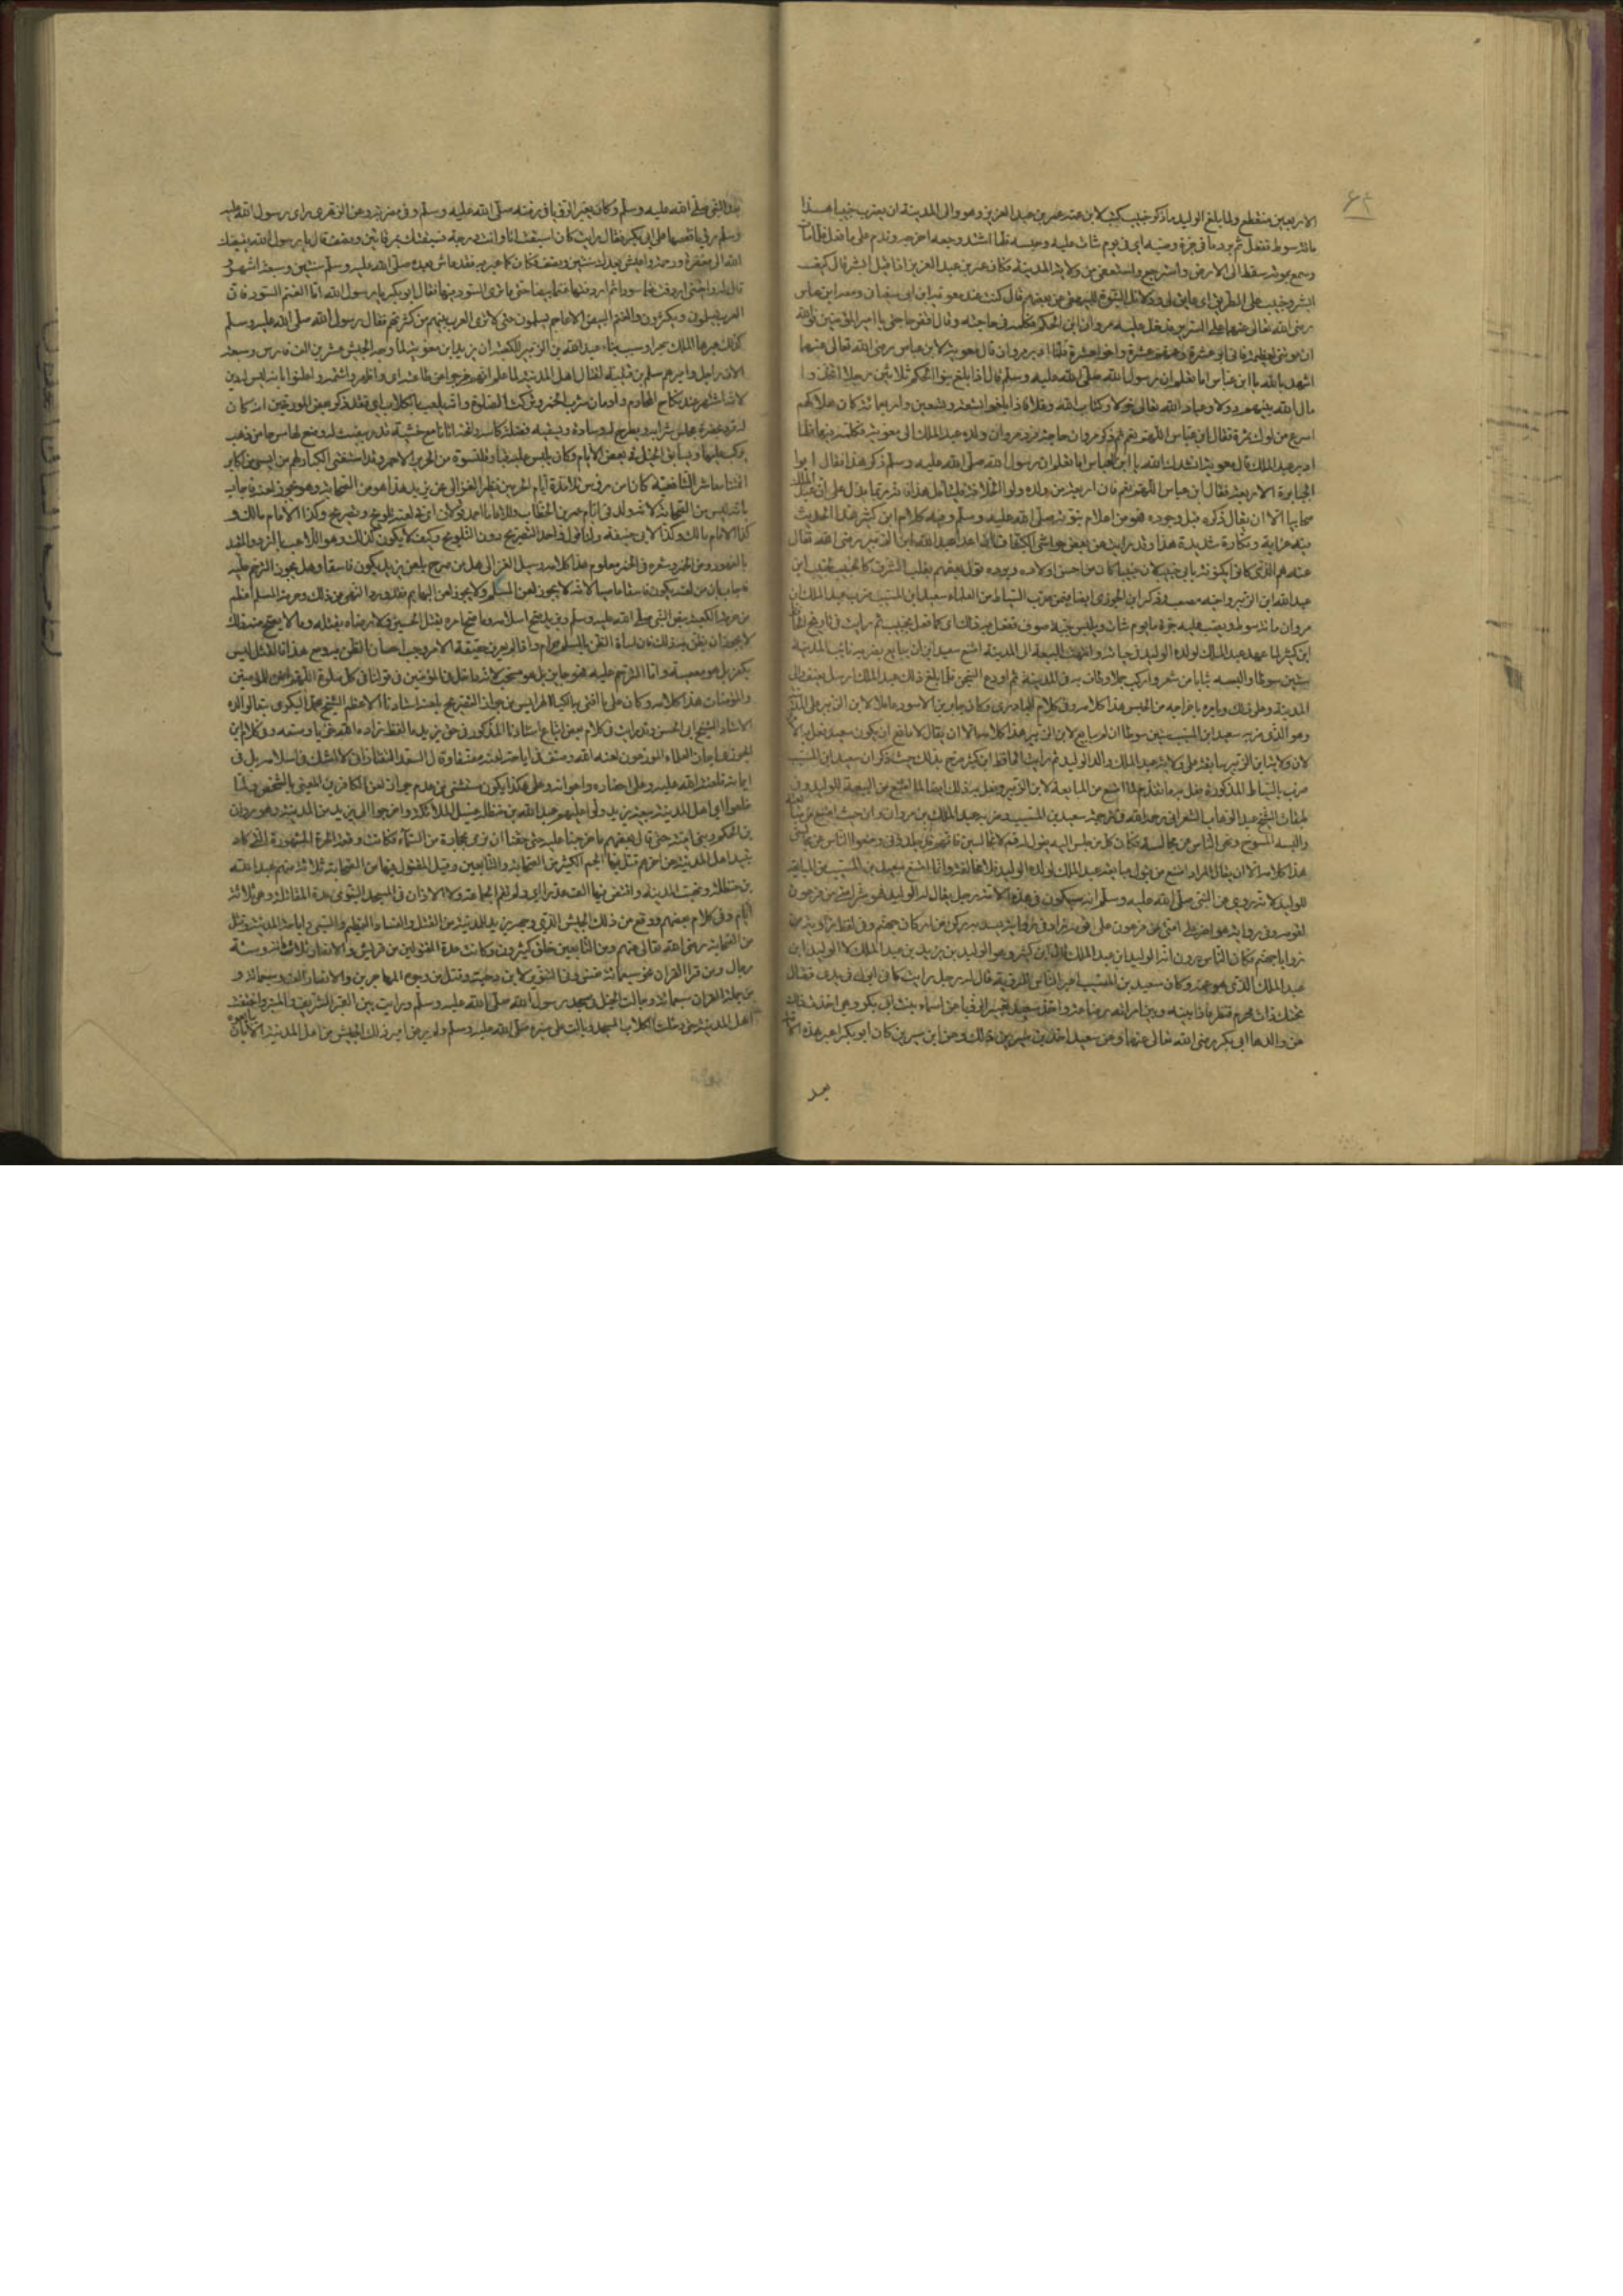 ٤٦
الاربعين منقطع ولما بلغ الوليد ما ذكر خبيب كتب لابن عمه عمر بن عبد العزيز وهو والي المدينة ان يضرب خبيبا هذا
مائة سوط ففعل ثم برد ماء في جرة وصبه اي في يوم شات عليه وحبسه فلما اشتد وجعه اخرجه وندم على ما فعل فلما مات
وسمع بموته سقط الى الارض واسترجع واستعفى من ولاية المدينة فكان عمر بن عبد العزيز اذا قيل ابشر قال كيف
ابشر وخبيب على الطريق اي عايق لي وفي دلائل النبوة للبيهقي عن بعضهم قال كنت عند معوية ابن ابي سفيان ومعه ابن عباس
رضي الله تعالى عنهما على السرير فدخل عليه مروان ابن الحكم فكلمه في حاجته وقال اقض حاجتي يا امير المؤمنين فوالله
ان مؤنتي لعظيمة فاني ابو عشرة وعم عشرة واخو عشرة فلما ادبر مروان قال معوية لابن عباس رضي الله تعالى عنهما
اشهد بالله يا ابن عباس اما تعلم ان رسول الله صلى الله عليه وسلم قال اذا بلغ بنوا الحكم ثلاثين رجلا اتخذوا
مال الله بينهم دولا وعباد الله تعالى خولا وكتاب الله دغلا فاذا بلغوا تسعة وتسعين واربعمائة كان هلاكهم
اسرع من لوك تمرة فقال ابن عباس اللهم نعم ثم ذكر مروان حاجة فرد مروان ولده عبد الملك الى معوية فكلمه فيها فلما
ادبر عبد الملك قال معوية انشدك الله يا ابن عباس اما تعلم ان رسول الله صلى الله عليه وسلم ذكر هذا فقال ابوا
الجبابرة الاربعة فقال ابن عباس اللهم نعم فان اربعة من ولده ولوا الخلافة فليتأمل هذا فانه ربما يدل على ان عبد الملك
صحابيا الا ان يقال ذكره قبل وجوده فهو من اعلام نبوته صلى الله عليه وسلم وفيه كلام ابن كثير هذا الحديث
فيه غرابة ونكارة شديدة هذا وقد رايت عن بعض حواشي الكشاف
عبد الله ابن الزبير واخيه مصعب وذكر ابن الجوزي ايضا فيمن ضرب السياط من العلماء سعيد ابن المسيب ضربه عبد الملك ابن
مروان مائة سوط وصب عليه جرة ماء يوم شات ولبس جبة صوف ففعل به ذلك اي كما فعل بخبيب ثم رايت في تاريخ الحافظ
ابن كثير لما عهد عبد الملك لولده الوليد في حياته وانتهت البيعة الى المدينة امتنع سعيد ابن المسيب ان يبايع فضربه نايب المدينة
ستين سوطا والبسه ثيابا من شعر واركبه جملا وطاف به في المدينة ثم اودع السجن فلما بلغ ذلك عبد الملك ارسل يعنف والي
المدينة وعلى ذلك ويامره باخراجه من الحبس هذا كلامه وفي كلام البلاذري وكان جابر بن الاسود عاملا لابن الزبير على المدينة
وهو الذي ضرب سعيد ابن المسيب ستين سوطا ان لم يبايع لابن الزبير هذا كلامه الا ان يقال لا مانع ان يكون سعيد فعل به
لان ولاية ابن الزبير سابقة على ولاية عبد الملك والد الوليد ثم رايت الحافظ ابن كثير صرح بذلك حيث ذكر ان سعيد ابن المسيب
ضرب بالسياط المذكورة وفعل به ما تقدم لما امتنع من المبايعة لابن الزبير وفعل به ذلك ايضا لما امتنع من البيعة للوليد وفي
طبقات الشيخ عبد الوهاب الشعراني رحمه الله في ترجمة سعيد بن المسيب وضربه عبد الملك بن مروان حيث امتنع من
والبسه المسوح ونهى الناس عن مجالسته فكان كل من جلس اليه يقول له قم لا تجالسني فانهم قد جلدوني ومنعوا الناس من مجالستي
هذا كلامه الا ان يقال المراد امتنع من قبول مبايعة عبد الملك لولده الوليد فلا مخالفة وانما امتنع سعيد بن المسيب من المبايعة
للوليد لانه روي عن النبي صلى الله عليه وسلم انه سيكون في هذه الامة رجل يقال له الوليد فهو شر لامتي من فرعون
لقومه وفي رواية هو اضر على امتي من فرعون على قومه زاد في رواية يسد به ركن من اركان جهنم وفي لفظ زاوية من
زوايا جهنم فكان الناس يرون انه الوليد ابن عبد الملك قال ابن كثير وهو الوليد بن يزيد بن عبد الملك لا الوليد ابن
عبد الملك الذي هو عمه وكان سعيد بن المسيب اعبر الناس للرؤية قال له رجل رايت كاني ابول في يدي فقال
تحتك ذات محرم فنظر فاذا بينه وبين امراته رضاعة واخذ سعيد تعبير الرؤيا عن اسماء بنت ابي بكر وهي اخذت ذلك
عن والدها ابي بكر رضي الله تعالى عنهما وعن سعيد اخذ ابن سيرين ذلك وعن ابن سيرين كان ابو بكر اعبر هذه الامة
بعد
بعد النبي صلى الله عليه وسلم وكان يعبر الرؤيا في زمنه صلى الله عليه وسلم وفي حضرته وعن الزهري راى رسول الله صلى الله عليه
وسلم رؤيا فقصها على ابي بكر فقال رايت كان استبقت انا وانت درجة فسبقتك بمرقاتين ونصف قال يا رسول الله يقبضك
الله الى مغفرة ورحمة واعيش بعدك سنتين ونصف فكان كما عبر به فقد عاش بعده صلى الله عليه وسلم سنتين وسبعة اشهر و
قال له رايتني اردفت غنما سودا ثم اردفتها غنما بيضا حتى ما ترى السود فيها فقال ابو بكر يا رسول الله اما الغنم السود فان
العرب يسلمون ويكثرون والغنم البيض الاعاجم يسلمون حتى لا ترى العرب فيهم من كثرتهم فقال رسول الله صلى الله عليه وسلم
كذلك عبرها الملك سحرا وسبب بناء عبد الله بن الزبير للكعبة ان يزيد ابن معوية لما وجه الجيش عشرين الف فارس وسبعة
الاف راجل واميرهم مسلم بن قتيبة لقتال اهل المدينة لما علم انهم خرجوا من طاعته اي واظهروا شتمه واعلنوا انه ليس له دين
لانه اشتهر عنه نكاح المحارم وادمان شرب الخمر وترك الصلوة وانه يلعب بالكلاب اي فقد ذكر بعض المورخين انه كان
له قرد يحضره مجلس شرابه ويطرح له وسادة ويسقيه فضلة كاسه واتخذ اتانا وحشية قد ريضت له وصنع لها سرجا من ذهب
يركب عليها ويسابق الخيل في بعض الايام وكان يلبس عليه قباء وقلنسوة من الحرير الاحمر وقد استفتي الكيا الهراسي من اكابر
ائمتنا معاشر الشافعية كان من رؤس تلامذة امام الحرمين نظير الغزالي عن يزيد هذا هو من الصحابة وهو يجوز لعنه فاجاب
بانه ليس من الصحابة لانه ولد في ايام عمر بن الخطاب وللامام احمد قولان اي في لعنه تلويح وتصريح وكذا الامام مالك و
كذا الامام مالك وكذا لابي حنيفة ولنا قول واحد التصريح دون التلويح وكيف لا يكون كذلك وهو اللاعب بالنرد والصيد
بالفهود ومدمن الخمر وشعره في الخمر معلوم هذا كلامه وسئل الغزالي هل من صرح بلعن يزيد يكون فاسقا وهل يجوز الترحم عليه
فاجاب بان من لعنه يكون فاسقا عاصيا لانه لا يجوز لعن المسلم ولا يجوز لعن البهايم فقد ورد النهي عن ذلك وحرمة المسلم اعظم
من حرمة الكعبة بنص النبي صلى الله عليه وسلم ويزيد صح اسلامه وما صح امره بقتل الحسين ولا رضاه بقتله وما لا يصح منه ذلك
لا يجوز ان يظن به ذلك فان اساءة الظن بالمسلم حرام واذا لم يعرف حقيقة الامر وجب احسان الظن به ومع هذا فالقتل ليس
بكفر بل هو معصية واما الترحم عليه فهو جايز بل هو مستحب لانه داخل في المؤمنين في قولنا في كل صلوة اللهم اغفر للمؤمنين
والمؤمنات هذا كلامه وكان على ما افتى به الكيا الهراسي من جواز التصريح بلعنه استاذنا الاعظم الشيخ محمد البكري تبعا لوالده
الاستاذ الشيخ ابي الحسن وقد رايت في كلام بعض اتباع استاذنا المذكور في حق يزيد ما لفظه زاده الله خزيا وضعه وفي كلام ابن
الجوزي اجاز العلماء الورعون لعنه الله وصنف في اباحة لعنه مصنفا وقال السعد التفتازاني لا اشك في اسلامه بل في
ايمانه فلعنة الله عليه وعلى انصاره واعوانه وعلى هذا يكون مستثنى من عدم جواز لعن الكافر المعين بالشخص ولما
خلعوا اي اهل المدينة بيعة يزيد ولوا عليهم عبد الله بن حنظلة غسيل الملائكة واخرجوا والي يزيد من المدينة وهو مروان
بن الحكم وبني امية حتى قال بعضهم ما خرجنا عليه حتى خفنا ان نرمى بحجارة من السماء فكانت وقعة الحرة المشهورة التي كادت
تبيد اهل المدينة عن اخرهم قتل فيها الجم الكثير من الصحابة والتابعين وقيل المقتول فيها من الصحابة ثلاثة منهم عبد الله
بن حنظلة ونهبت المدينة وافتض فيها الف عذراء اي ولم تقم الجماعة ولا الاذان في المسجد النبوي مدة المقاتلة وهي ثلاثة
ايام وفي كلام بعضهم ووقع من ذلك الجيش الذي وجهه يزيد للمدينة من القتل والفساد العظيم والسبي واباحة المدينة وقتل
من الصحابة رضي الله تعالى عنهم ومن التابعين خلق كثيرون وكانت عدة المقتولين من قريش والانصار ثلاثمائة وستة
رجال ومن قراء القران نحو سبعمائة نفس وفي التنوير لابن دحية وقتل من وجوه المهاجرين والانصار الف وسبعمائة و
من حملة القران سبعمائة وجالت الخيل في مسجد رسول الله صلى الله عليه وسلم وراثت بين القبر الشريف والمنبر واختفت
اهل المدينة حتى دخلت الكلاب المسجد وبالت على منبره صلى الله عليه وسلم ولم يرض امير ذلك الجيش من اهل المدينة الا بان
يبايعوه